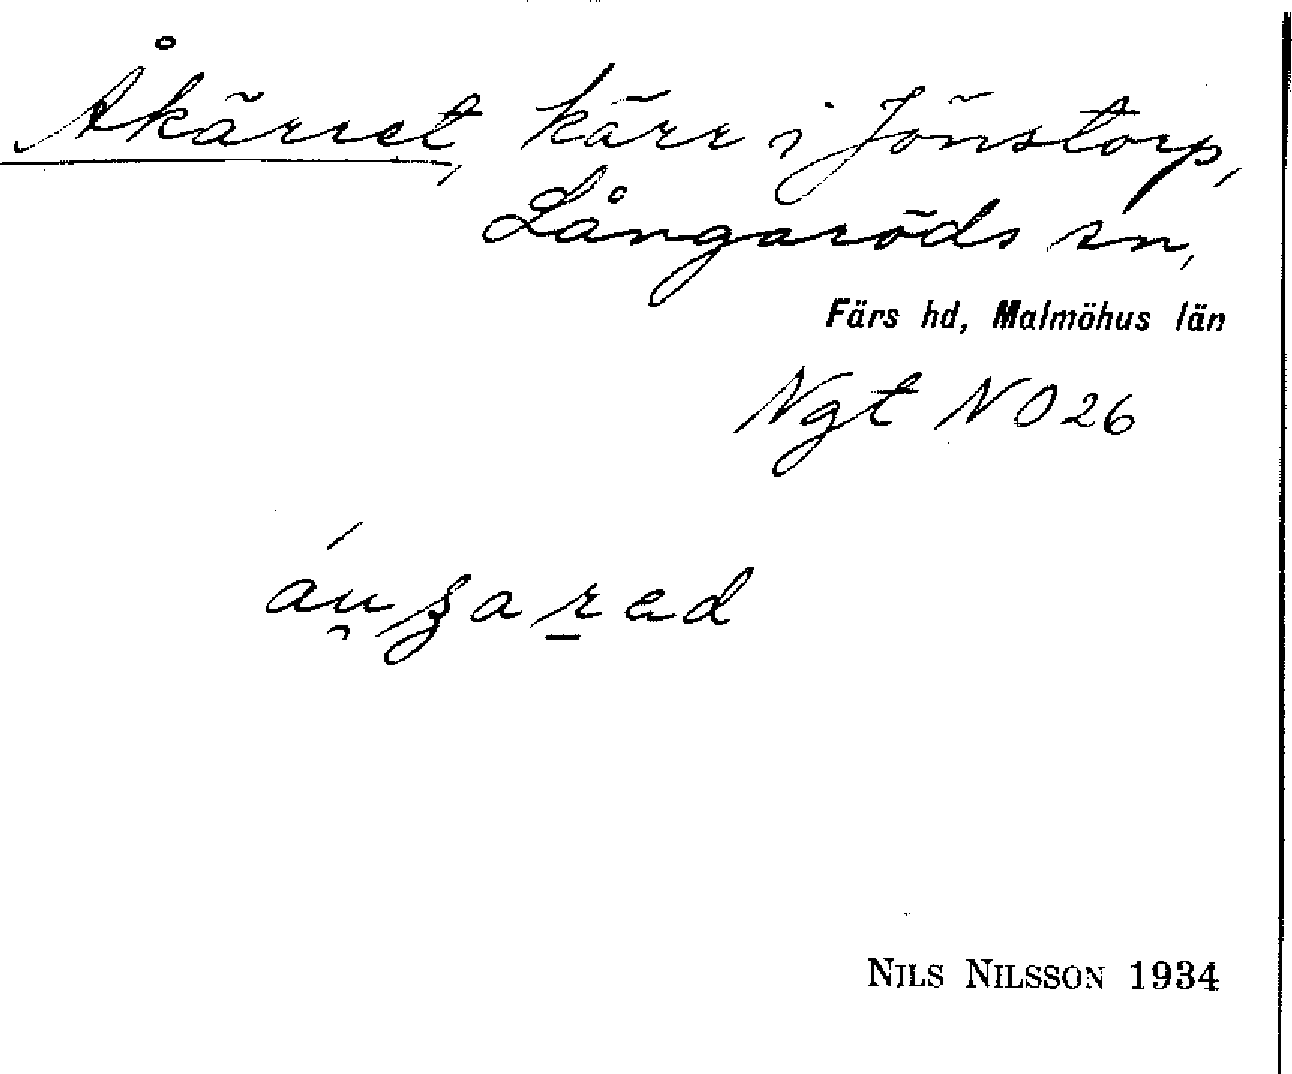 Åkärret, kärr i Jönstorp,
Långaröds sn,
Färs hd, Malmöhus län
Ngt NO 26
NILS NILSSON 1934